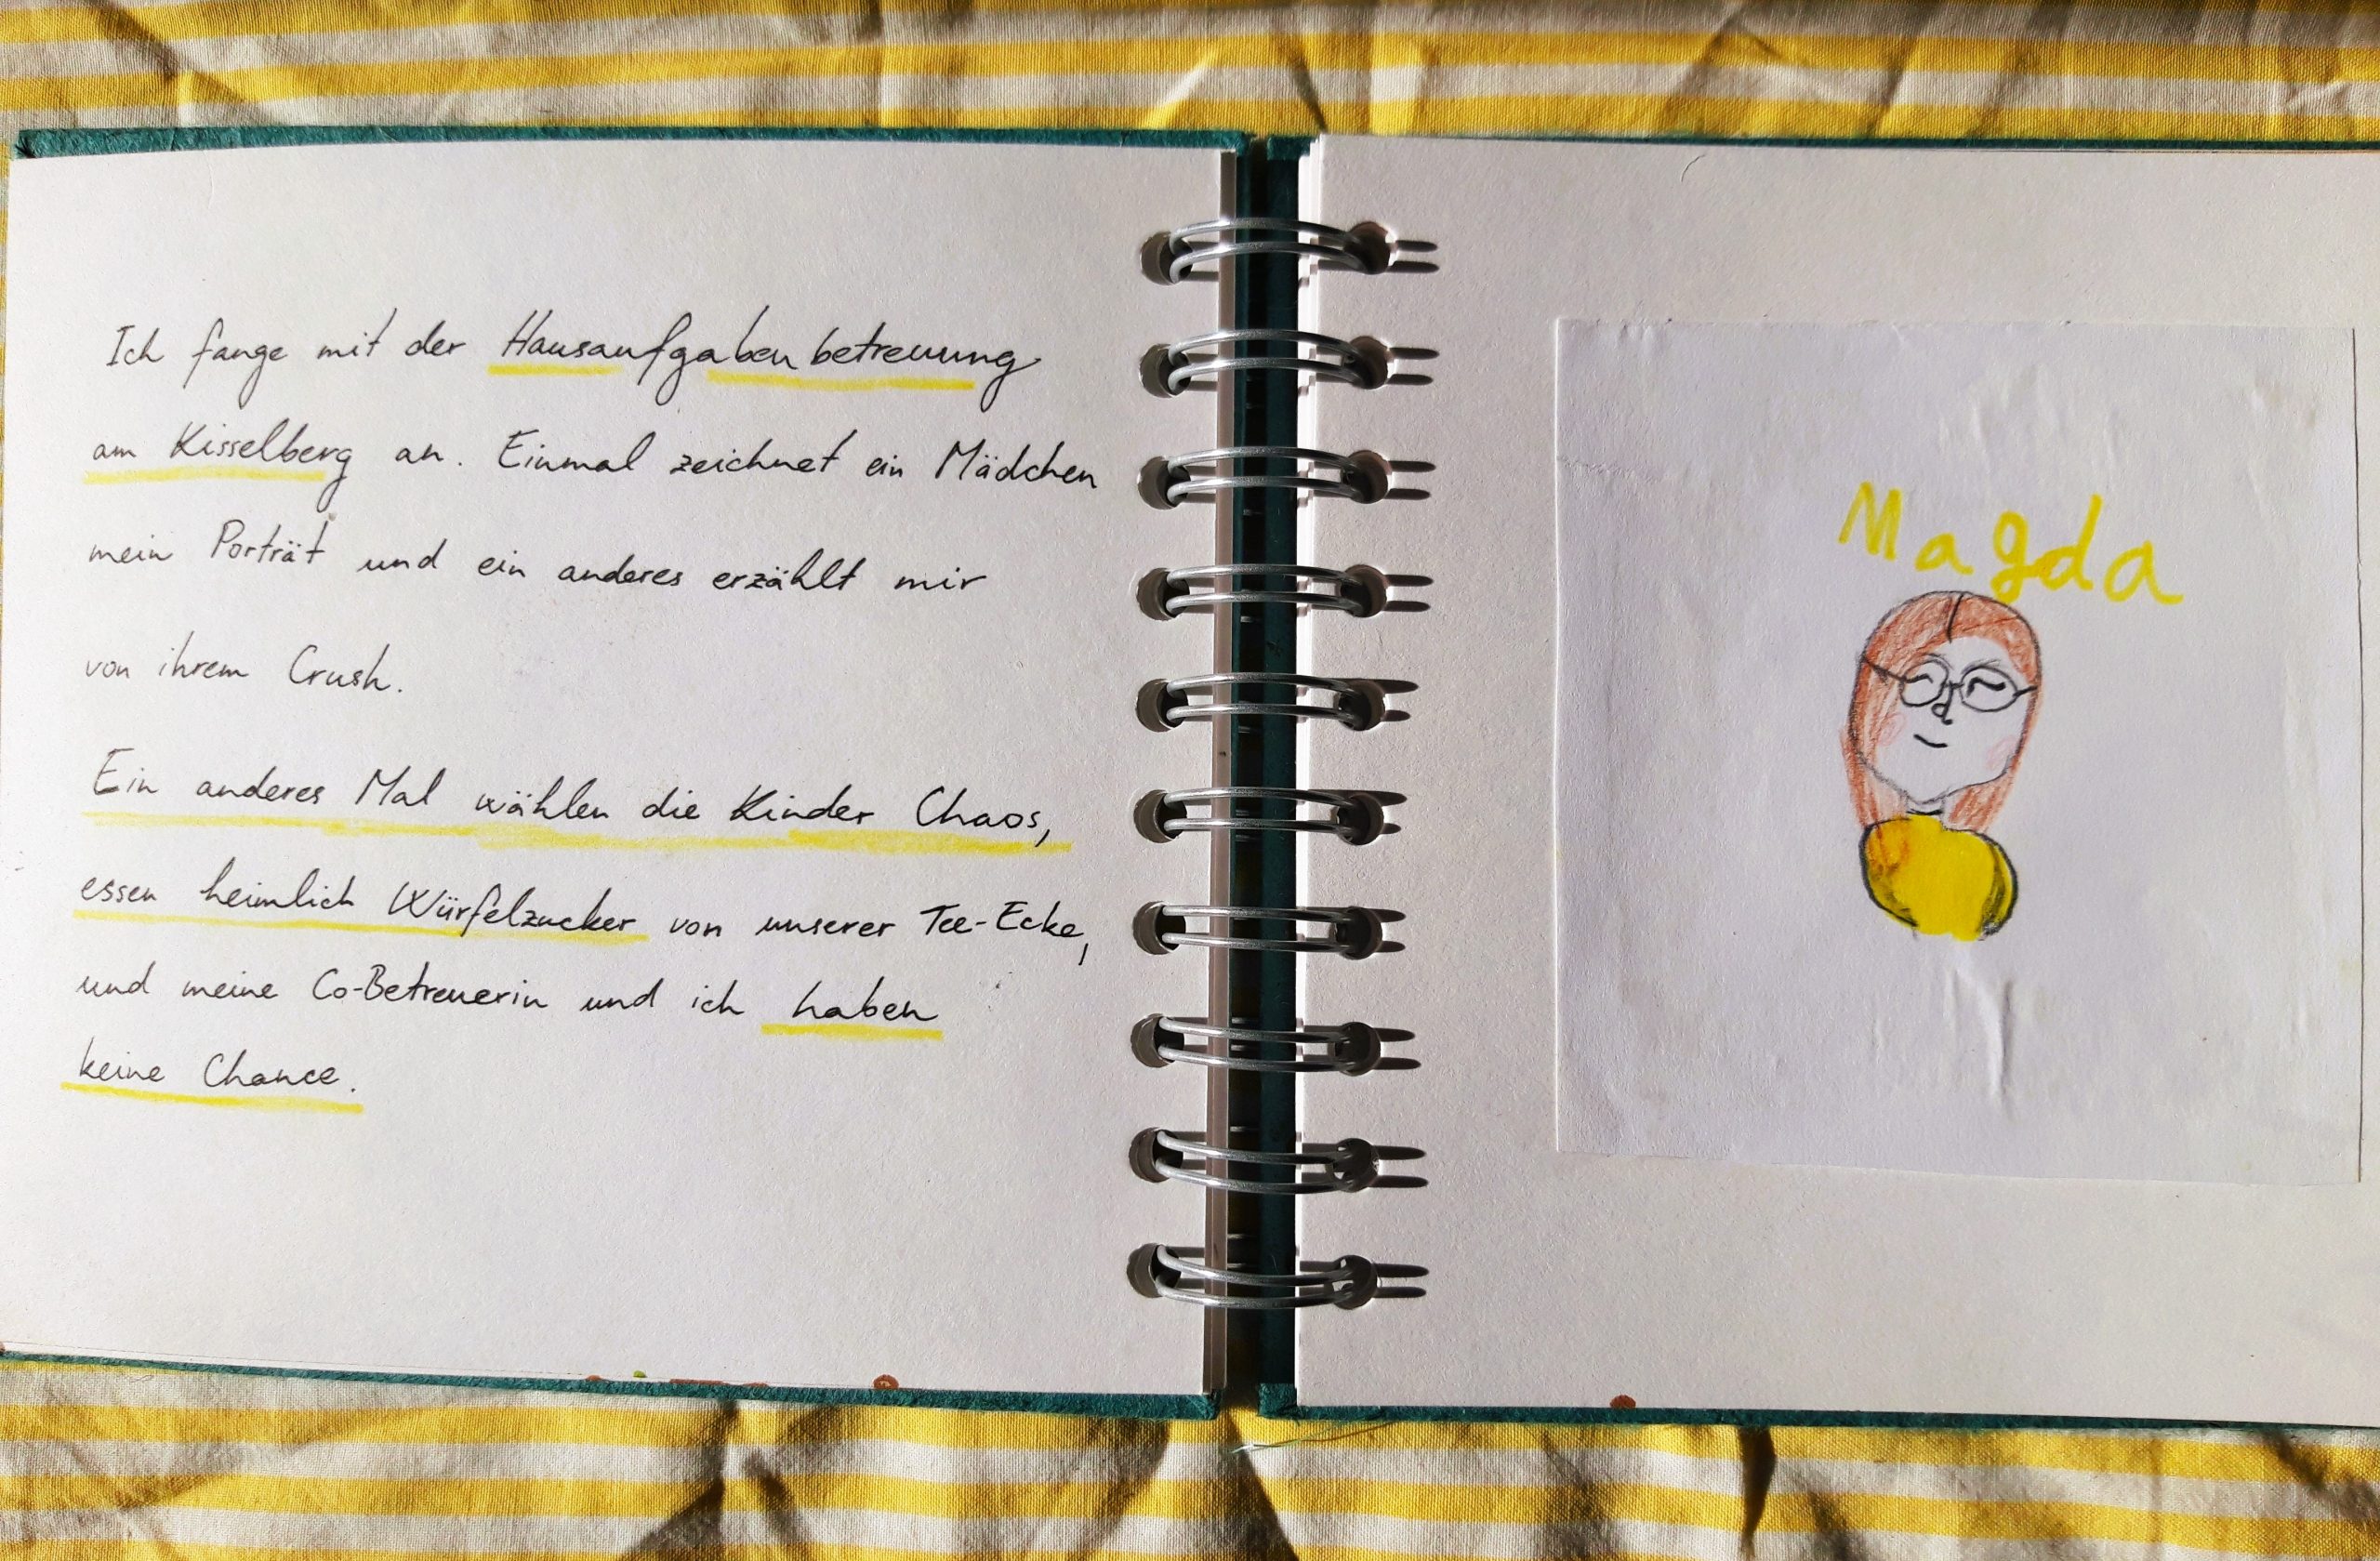 Ich fange mit der Hausaufgabenbetreuung
am Kisselberg an. Einmal zeichnet ein Mädchen
mein Porträt und ein anderes erzählt mir
von ihrem Crush.
Ein anderes Mal wählen die Kinder Chaos,
essen heimlich Würfelzucker von unserer Tee-Ecke,
und meine Co-Betreuerin und ich haben
keine Chance.
Magda